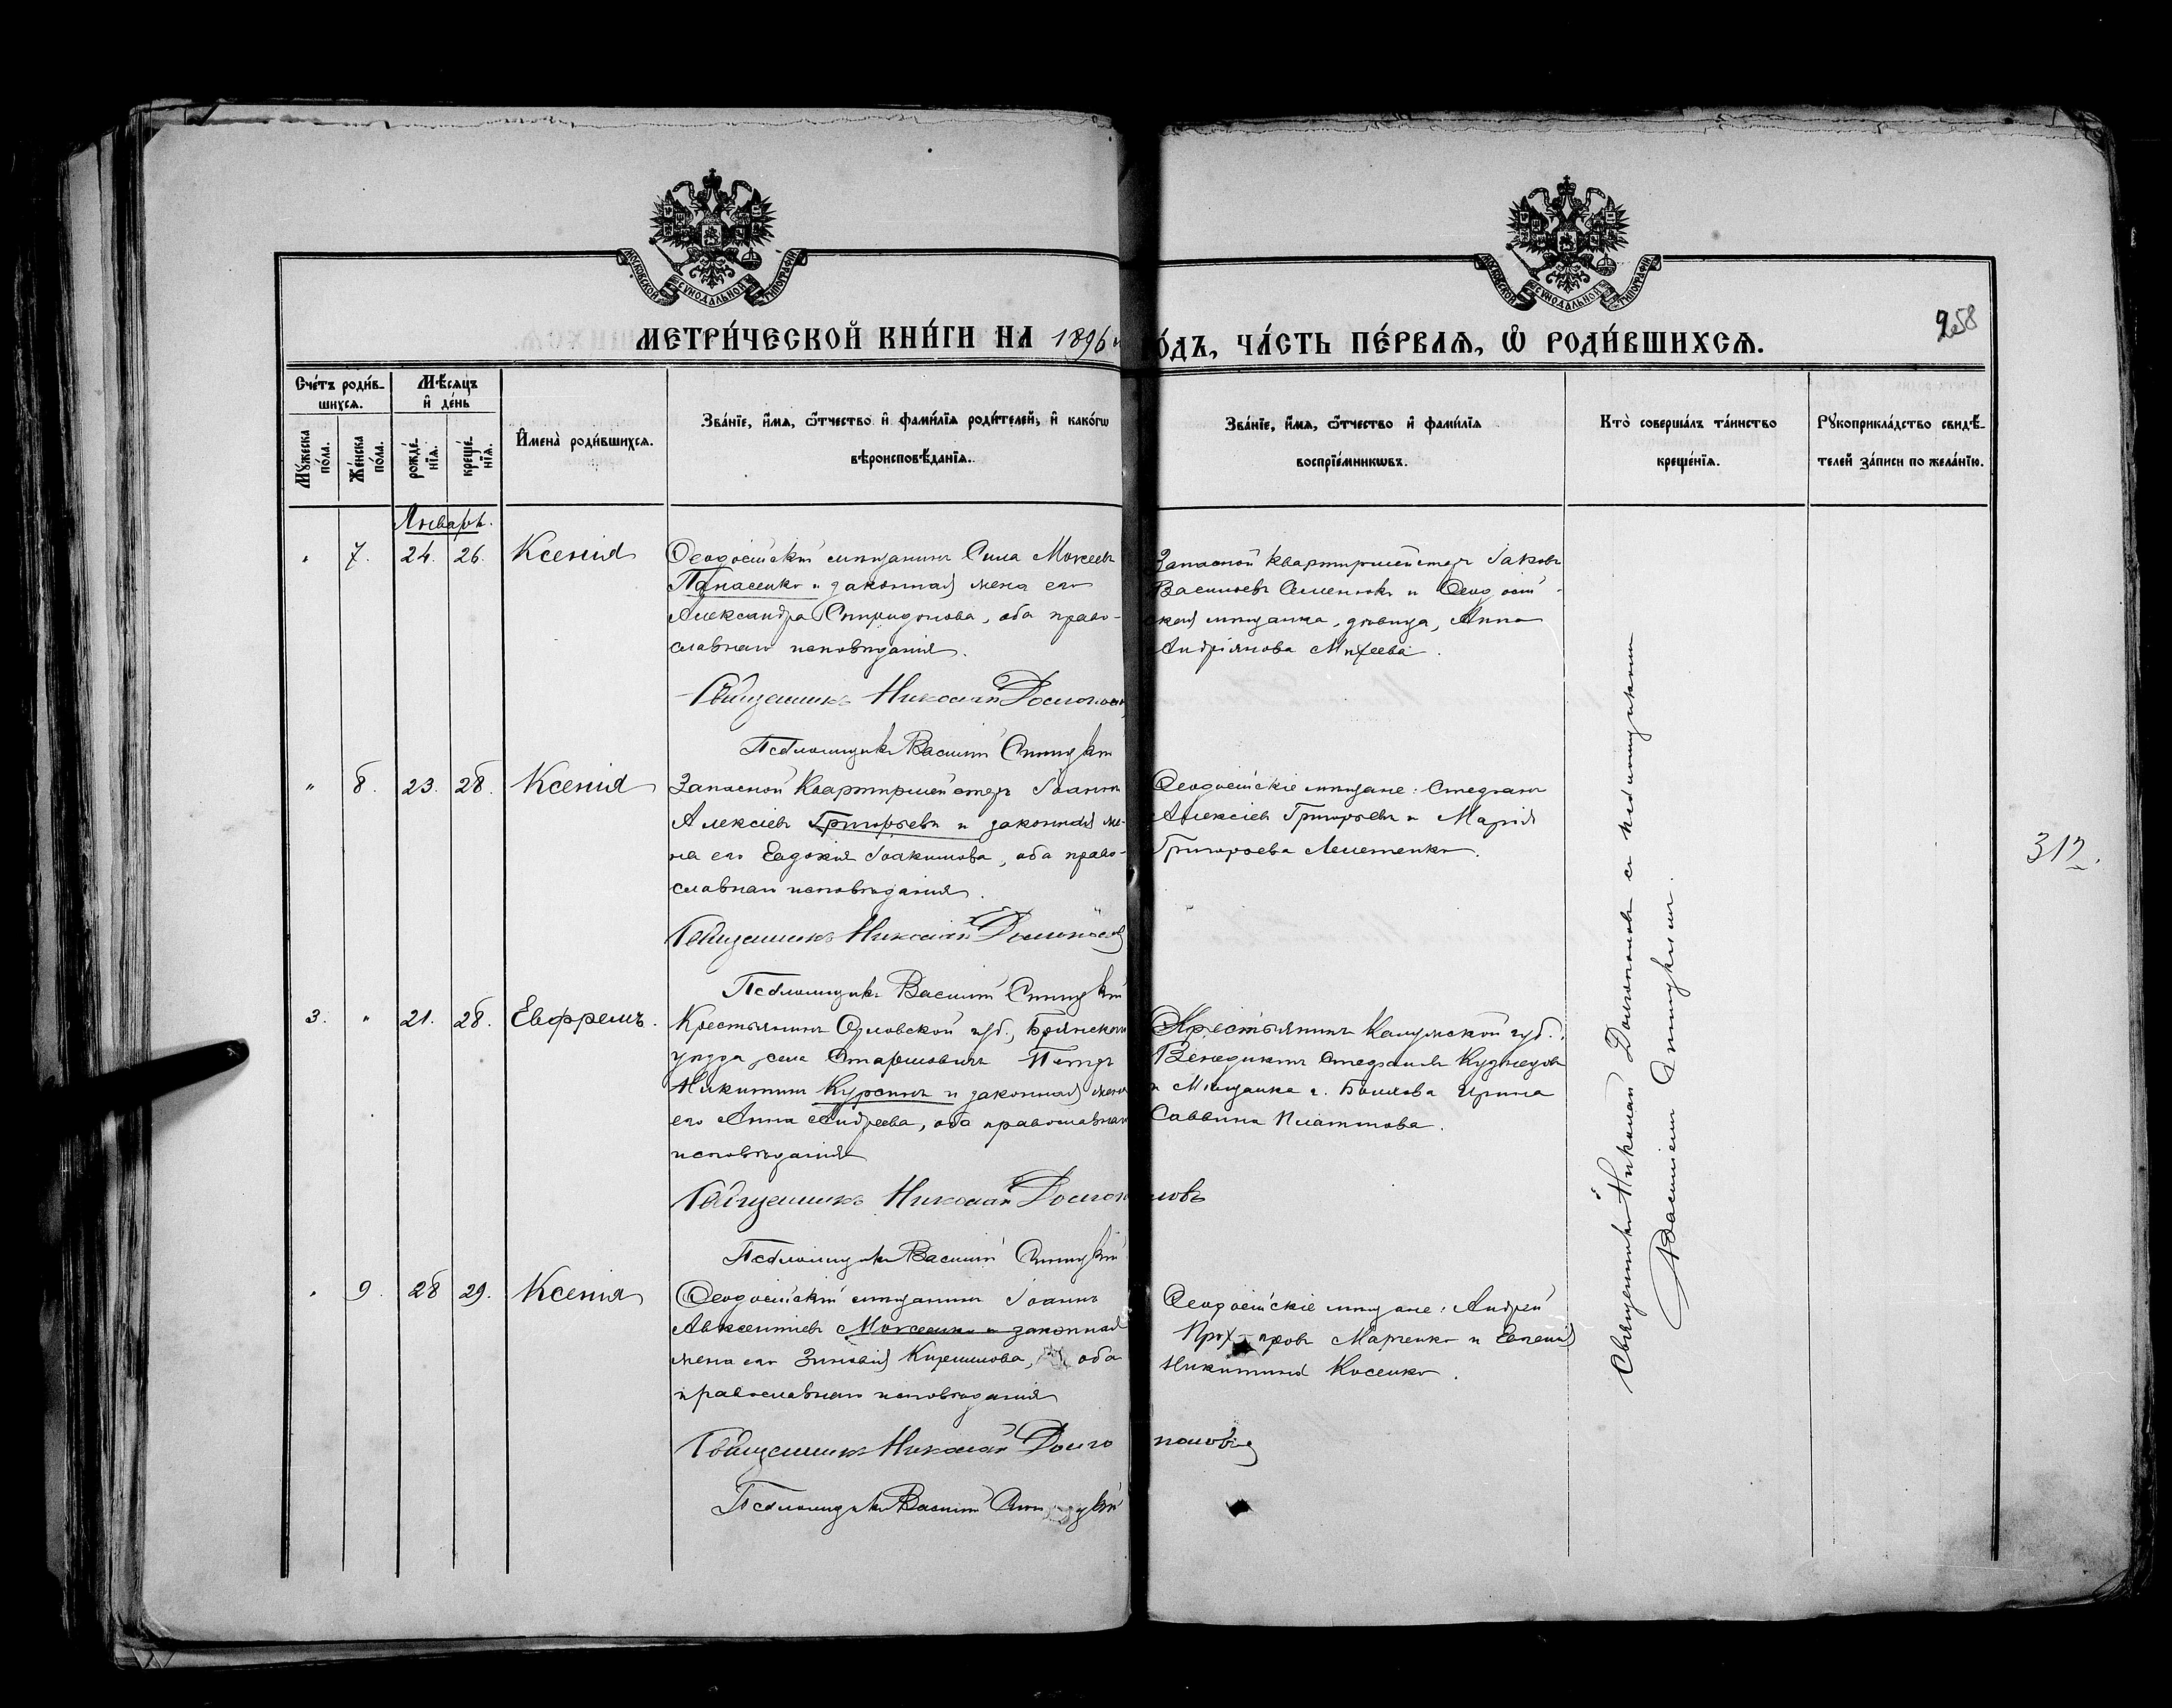 МОСКОВСКОЙ СѴНОДАЛЬНОЙ ТИПОГРАФІИ
МОСКОВСКОЙ СѴНОДАЛЬНОЙ ТИПОГРАФІИ
258
МЕТРИ́ЧЕСКОЙ КНИ́ГИ НА 1896 и
О́ДЪ, ЧА́СТЬ ПЕ́РВАЯ, Ѡ РОДИ́ВШИХСЯ.
Сче́тъ роди́в-
шихся.
Му́жеска по́ла.
Же́нска по́ла.
Мѣ́сяцъ
и де́нь
рожде́нїя.
креще́нїя.
Имена̀ роди́вшихся.
Зва́нїе, и́мя, ѻ́тчество и фами́лїя роди́телей, и како́гѡ
вѣроисповѣ́данїя.
Зва́нїе, и́мя, ѻ́тчество и фами́лїя
воспрїе́мникѡвъ.
Кто̀ соверша́лъ та́инство
креще́нїя.
Рꙋкоприкла́дство свидѣ́-
телей за́писи по жела́нїю.
Январь.
" 7. 24. 26. Ксенія
Ѳеодосійскій мѣщанинъ Сила Моисеевъ
Панасенко и законная жена его
Александра Спиридонова, оба право-
славнаго исповѣданія.
Священникъ Николай Долгополовъ
Псаломщикъ Василій
Запасной квартирмейстеръ Іаковъ
Васильевъ Семенюкъ и Ѳеодосій-
ская мѣщанка, дѣвица, Анна
Андріянова Михеева.
" 8. 23. 28. Ксенія
Запасной квартирмейстеръ Іоаннъ
Алексіевъ Григорьевъ и законная же-
на его Евдокія Іоакимова, оба право-
славнаго исповѣданія.
Священникъ Николай Долгополовъ
Псаломщикъ Василій
Ѳеодосійскіе мѣщане: Стефанъ
Алексіевъ Григорьевъ и Марія
Григорьева
3. " 21. 28. Евфремъ.
Крестьянинъ Орловской губ., Брянскаго
уѣзда, села Петръ
Никитинъ Курсинъ и законная жена
его Анна Андреева, оба православнаго
исповѣданія
Священникъ Николай Долгополовъ
Псаломщикъ Василій
Крестьянинъ Калужской губ.
Венедиктъ Стефановъ Кузнецовъ
и Мѣщанка г. Болхова Ирина
Саввина Платонова.
" 9. 28 29. Ксенія
Ѳеодосійскій мѣщанинъ Іоаннъ
Авксентіевъ Моисеенко и законная
жена его Зиновія оба
православнаго исповѣданія
Священникъ Николай Долгополовъ
Псаломщикъ Василій
Ѳеодосійскіе мѣщане: Андрей
Прохоровъ Марченко и Евгенія
Никитина Косенко.
Священникъ Николай Долгополовъ съ псаломщикомъ
Василіемъ
312.